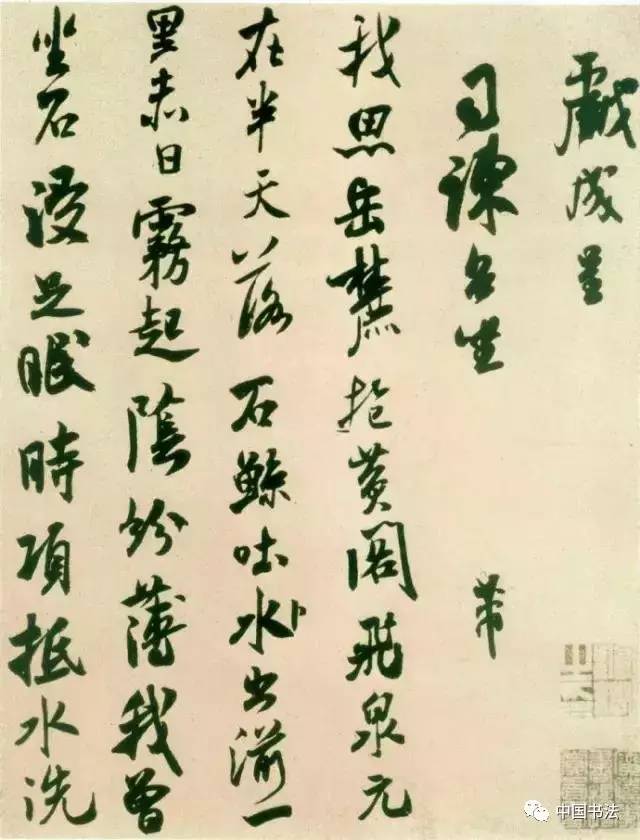 戲成呈
司諫台坐
芾
我思岳麓抱黃閣飛泉元
在半天落石鯨吐水出湔一
里赤日霧起陰紛薄我曾
坐石浸足眠時項抵水洗
中国书法